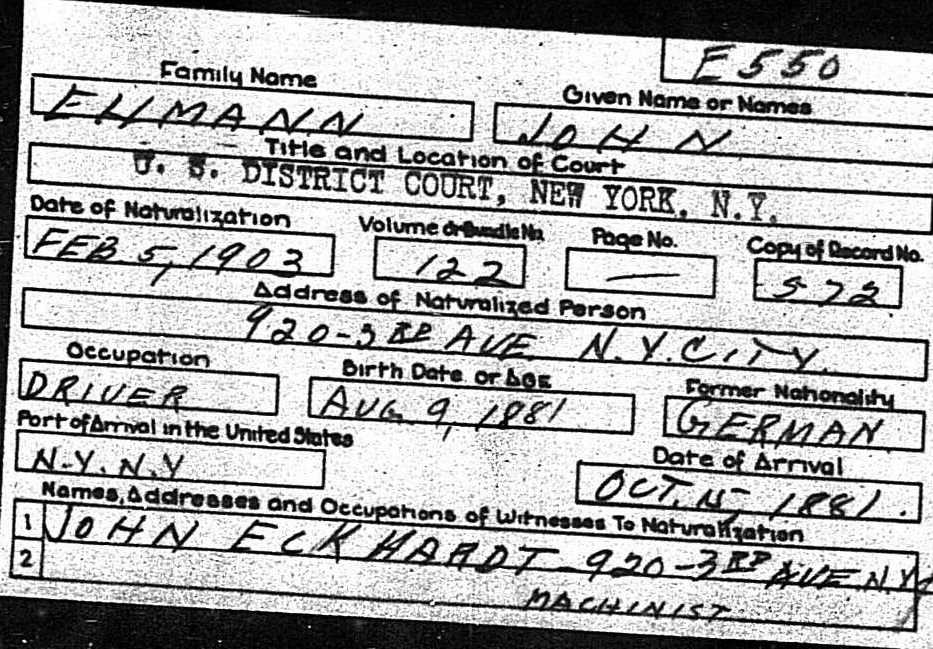 E550
Family Name Given Name or Names
EHMANN JOHN
Title and Location of Court
U. S. DISTRICT COURT, NEW YORK, N.Y.
Date of Naturalization Volume or Bundle No. Page No. Copy of Record No.
FEB 5, 1903 122 — 572
Address of Naturalized Person
920-3RD AVE N.Y.CITY.
Occupation Birth Date or AGE Former Nationality
DRIVER AUG 9, 1881 GERMAN
Port of Arrival in the United States Date of Arrival
N.Y. N.Y OCT. 1881.
Names, Addresses and Occupations of Witnesses To Naturalization
1 JOHN ECKHARDT 920-3RD AVE NYC
2
MACHINIST